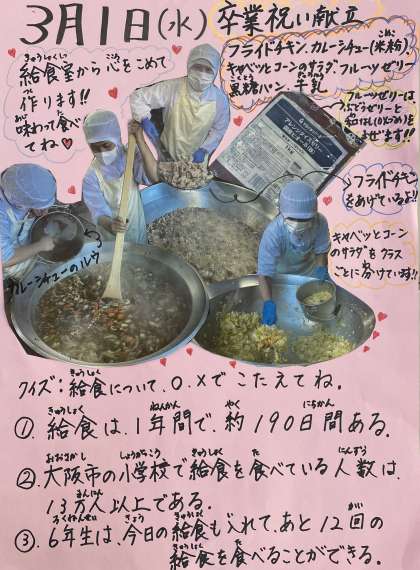 3月1日(水) 卒業祝い献立
フライドチキン、カレーシチュー(米粉)、
キャベツとコーンのサラダ、フルーツゼリー
黒糖パン 牛乳
給食室から心をこめて
作ります!!
味わって食べ
てね
フルーツゼリーは
ぶどうゼリーと
和なし(カットつめ)を
まぜます!!
フライドチキン
をあげているよ!!
キャベツとコーン
のサラダをクラス
ごとに分けています!!
カレーシチューのルウ
クイズ:給食について、○、×でこたえてね。
①、給食は、1年間で、約190日間ある。
②、大阪市の小学校で給食を食べている人数は、
13万人以上である。
③、6年生は、今日の給食も入れて、あと12回の
給食を食べることができる。